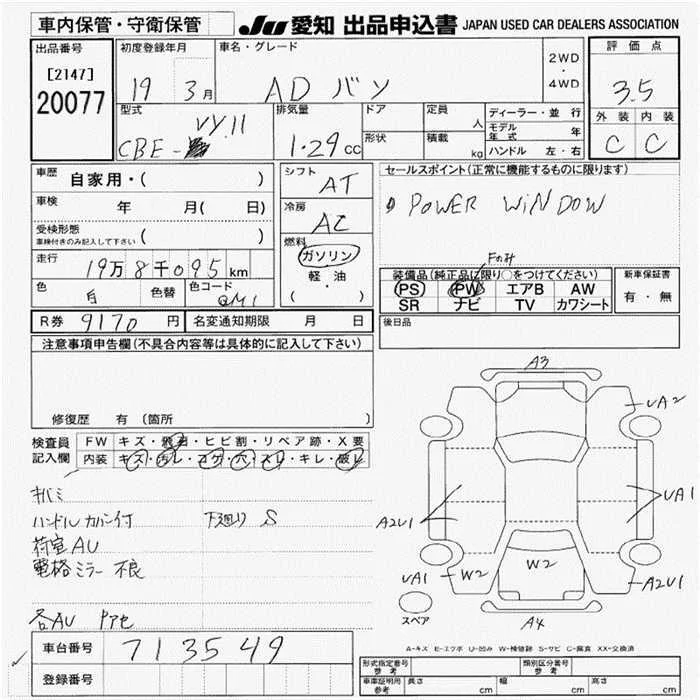 車内保管・守衛保管 JU 愛知 出品申込書 JAPAN USED CAR DEALERS ASSOCIATION
出品番号 初度登録年月 車名・グレード 2WD・4WD 評価点
[2147] 19 3月 AD バン 3.5
20077
型式 VY11 排気量 ドア 定員 人 ディーラー・並行 外装 内装
CBE- 1.29cc 形状 積載 kg モデル年式 年 C C
ハンドル 左・右
車歴 自家用・( ) シフト AT セールスポイント(正常に機能するものに限ります)
車検 年 月( 日) 冷房 AC POWER WINDOW
受検形態 車検付きのみ記入して下さい ( ) 燃料 ガソリン
走行 19万8千095km 軽・油 Fのみ
装備品(純正品に限り○をつけてください) 新車保証書
色 白 色替 色コード QM1 ( ・ ) PS PW エアB AW 有・無
SR ナビ TV カワシート
R券 9170円 名変通知期限 月 日 後日品
注意事項申告欄(不具合内容等は具体的に記入して下さい)
修復歴 有 (箇所
検査員記入欄 FW キズ・飛石・ヒビ割・リペア跡・X要
内装 キズ・汚レ・コゲ・穴・スレ・キレ・破レ
A3
UA2
A2U1 UA1
UA1 W2 W2 A2U1
スペア A4
ハンドル カバン付 下廻り S
荷室AU
電格ミラー 不良
各AU Pアセ
A-キズ E-エクボ U-凹み W-補修跡 S-サビ C-腐食 XX-交換済
車台番号 713549
登録番号
形式指定番号 参考 類別区分番号 参考
車庫証明用 参考 長さ cm 幅 cm 高さ cm